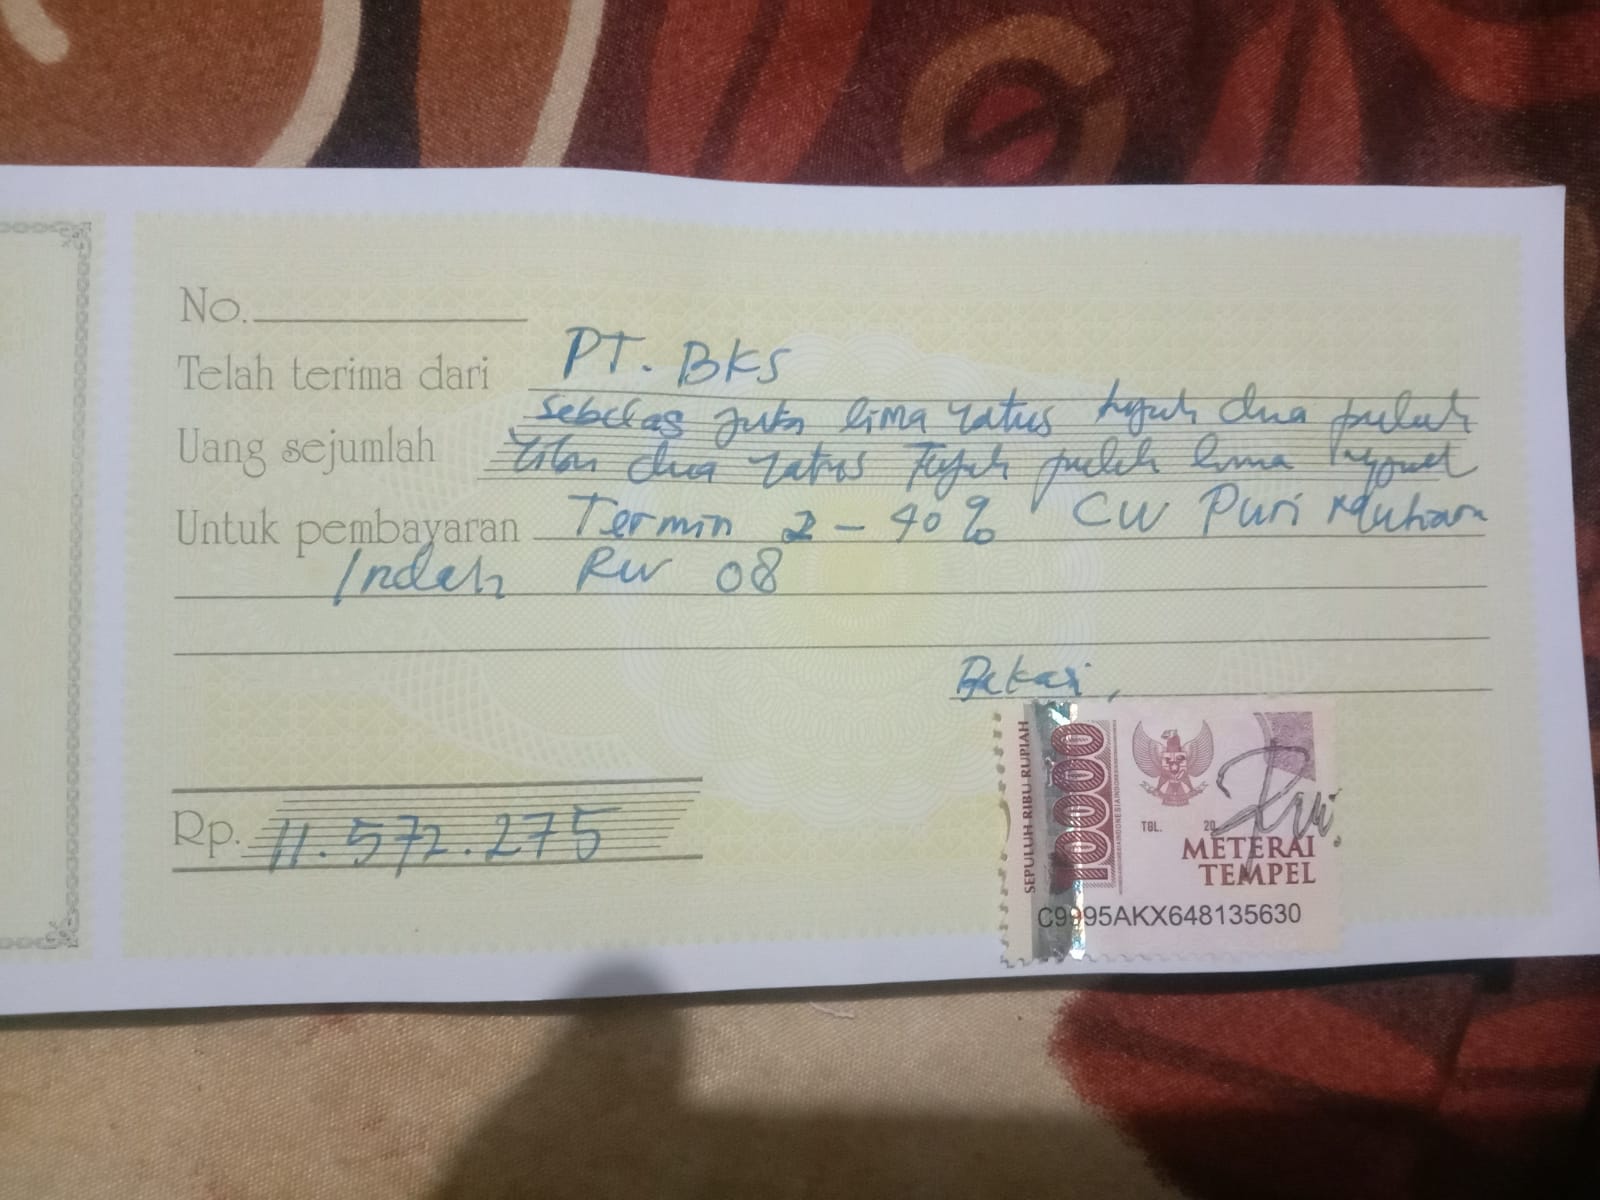 No.
Telah terima dari PT. BKS
Uang sejumlah sebelas juta lima ratus tujuh dua puluh
ribu dua ratus Tujuh puluh lima
Untuk pembayaran Termin 2 - 40% CW Puri
Indah RW 08
Bekasi,
Rp. 11.572.275
SEPULUH RIBU RUPIAH
10000
TGL. 20
METERAI
TEMPEL
C9995AKX648135630